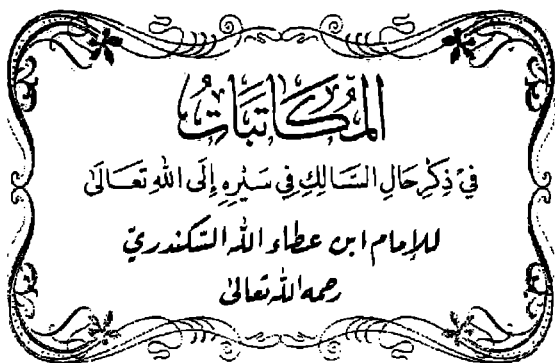 المُكَاتَبَاتُ
فِي ذِكْرِ حَالِ السَّالِكِ فِي سَيْرِهِ إِلَى اللهِ تَعَالَىٰ
للإمام ابن عطاء الله السّكندريّ
رحمه الله تعالىٰ